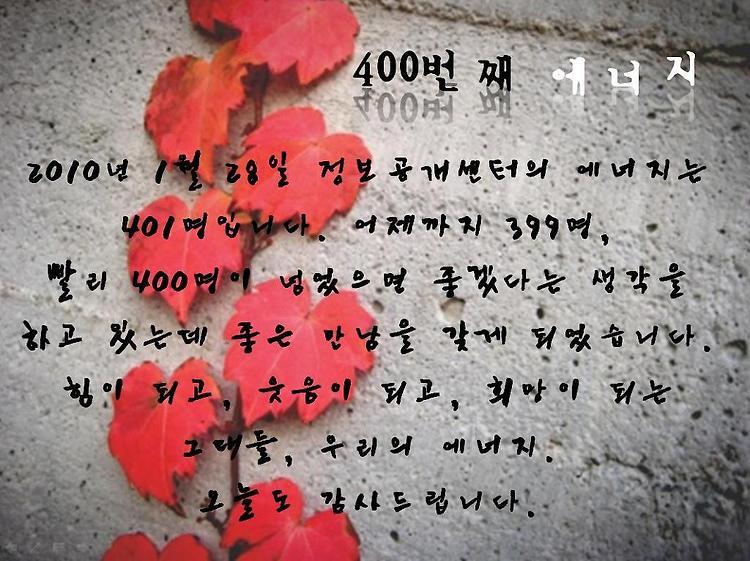 400번 째 에너지
2010년 1월 28일 정보공개센터의 에너지는
401명입니다. 어제까지 399명,
빨리 400명이 넘었으면 좋겠다는 생각을
하고 있는데 좋은 만남을 갖게 되었습니다.
힘이 되고, 웃음이 되고, 희망이 되는
그대들, 우리의 에너지.
오늘도 감사드립니다.